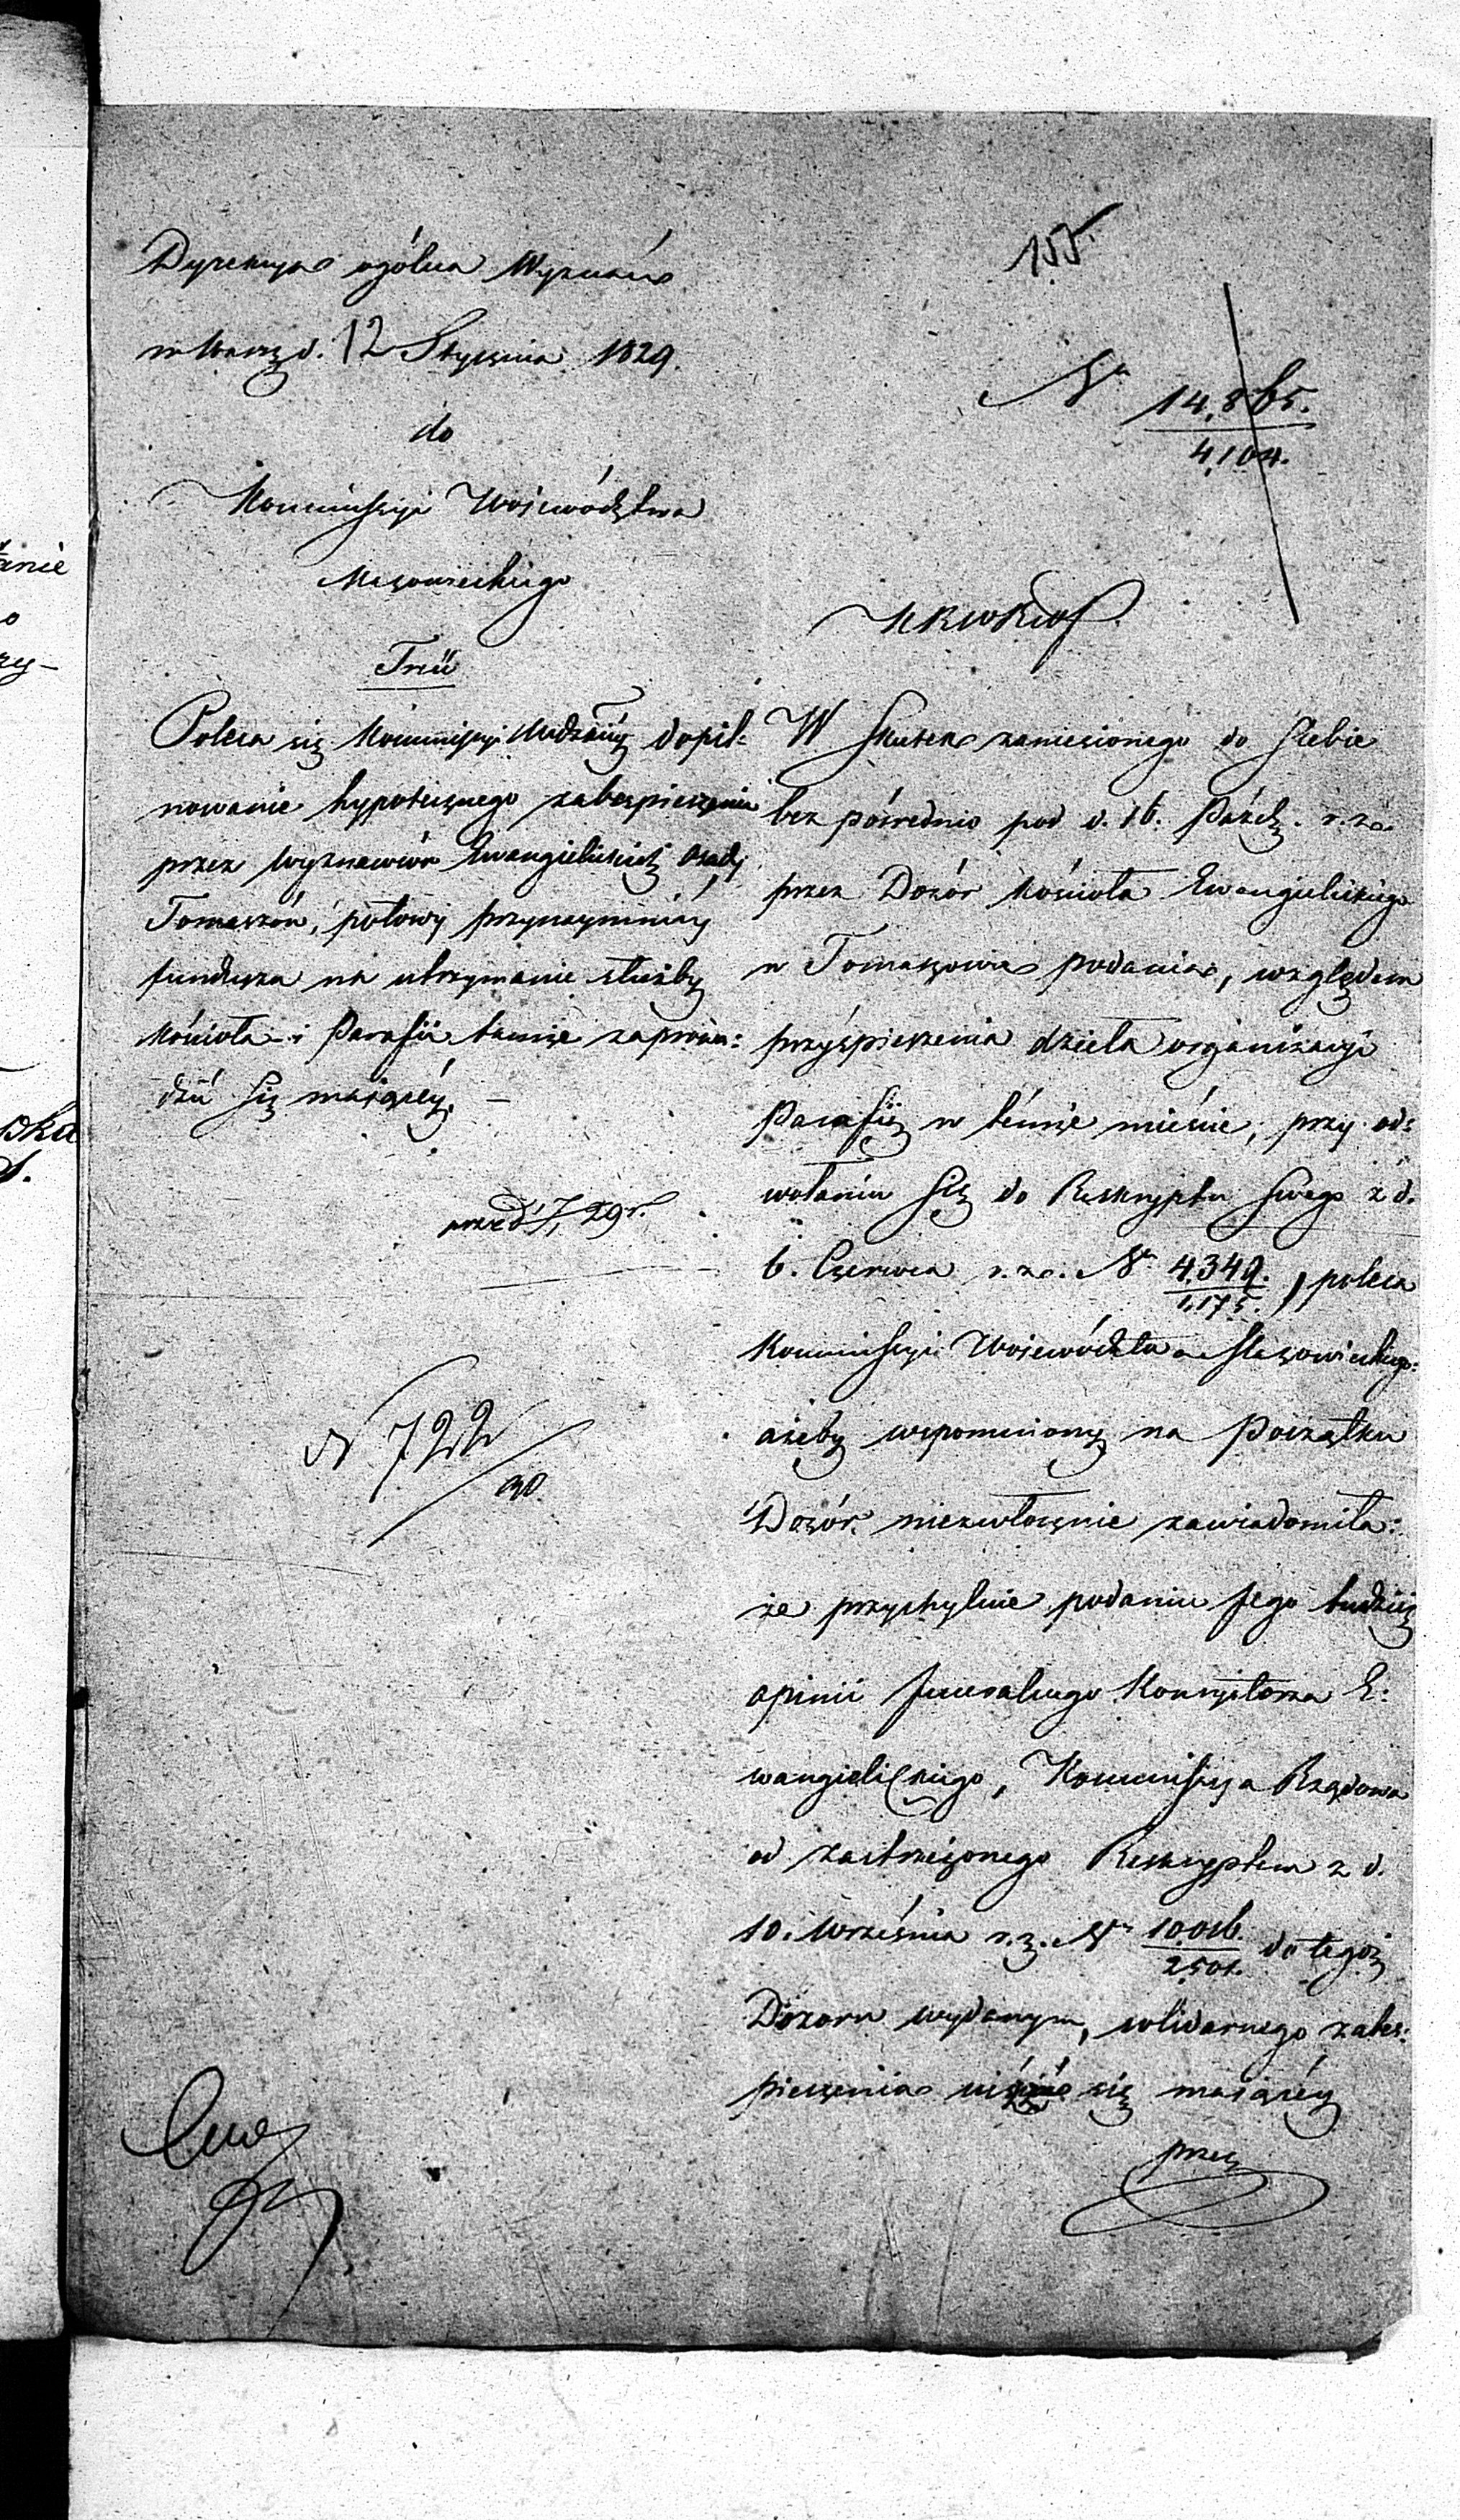 155.
Dyrekcya ogólna Wyznań
w Warsz. d. 12 Stycznia 1829.
do
Kommissyi Województwa
Mazowieckiego
Treść
Poleca się Kommissyi dopil=
nowanie hypotecznego zabespieczenia
przez wyznawców Ewangelickich Osady
Tomaszów, połowy przynaymniéy
funduszu na utrzymanie służby
Kościoła i Parafii tamże zaprowa=
dzić się maiącéy. –
29 r.
N 722
Nr 14,865.
4,104.
KRWRiOP.
W Skutek zaniesionego do Siebie
bezpośrednio pod d. 16. Paźdz. r. z.
przez Dozór Kościoła Ewangelickiego
w Tomaszowie podania, względem
przyśpieszenia dzieła organizacyi
Parafii w témże mieście, przy od=
wołaniu Się do Reskryptu Swego z d.
6. Czerwca r. z. Nr 4,349. , poleca
1,175.
Kommissyi Województwa Mazowieckiego
ażeby wspomniony na początku
Dozór niezwłocznie zawiadomiła:
że przychylnie podaniu Jego tudzież
opinii Jeneralnego Konsystorza E=
wangielickiego, Kommissya Rządowa
od zastrzeżonego Reskryptem z d.
10. Września r. z. Nr 10,016. do tegoż
2,501.
Dozoru wydanym, solidarnego zabes=
pieczenia się maiącéy
przez